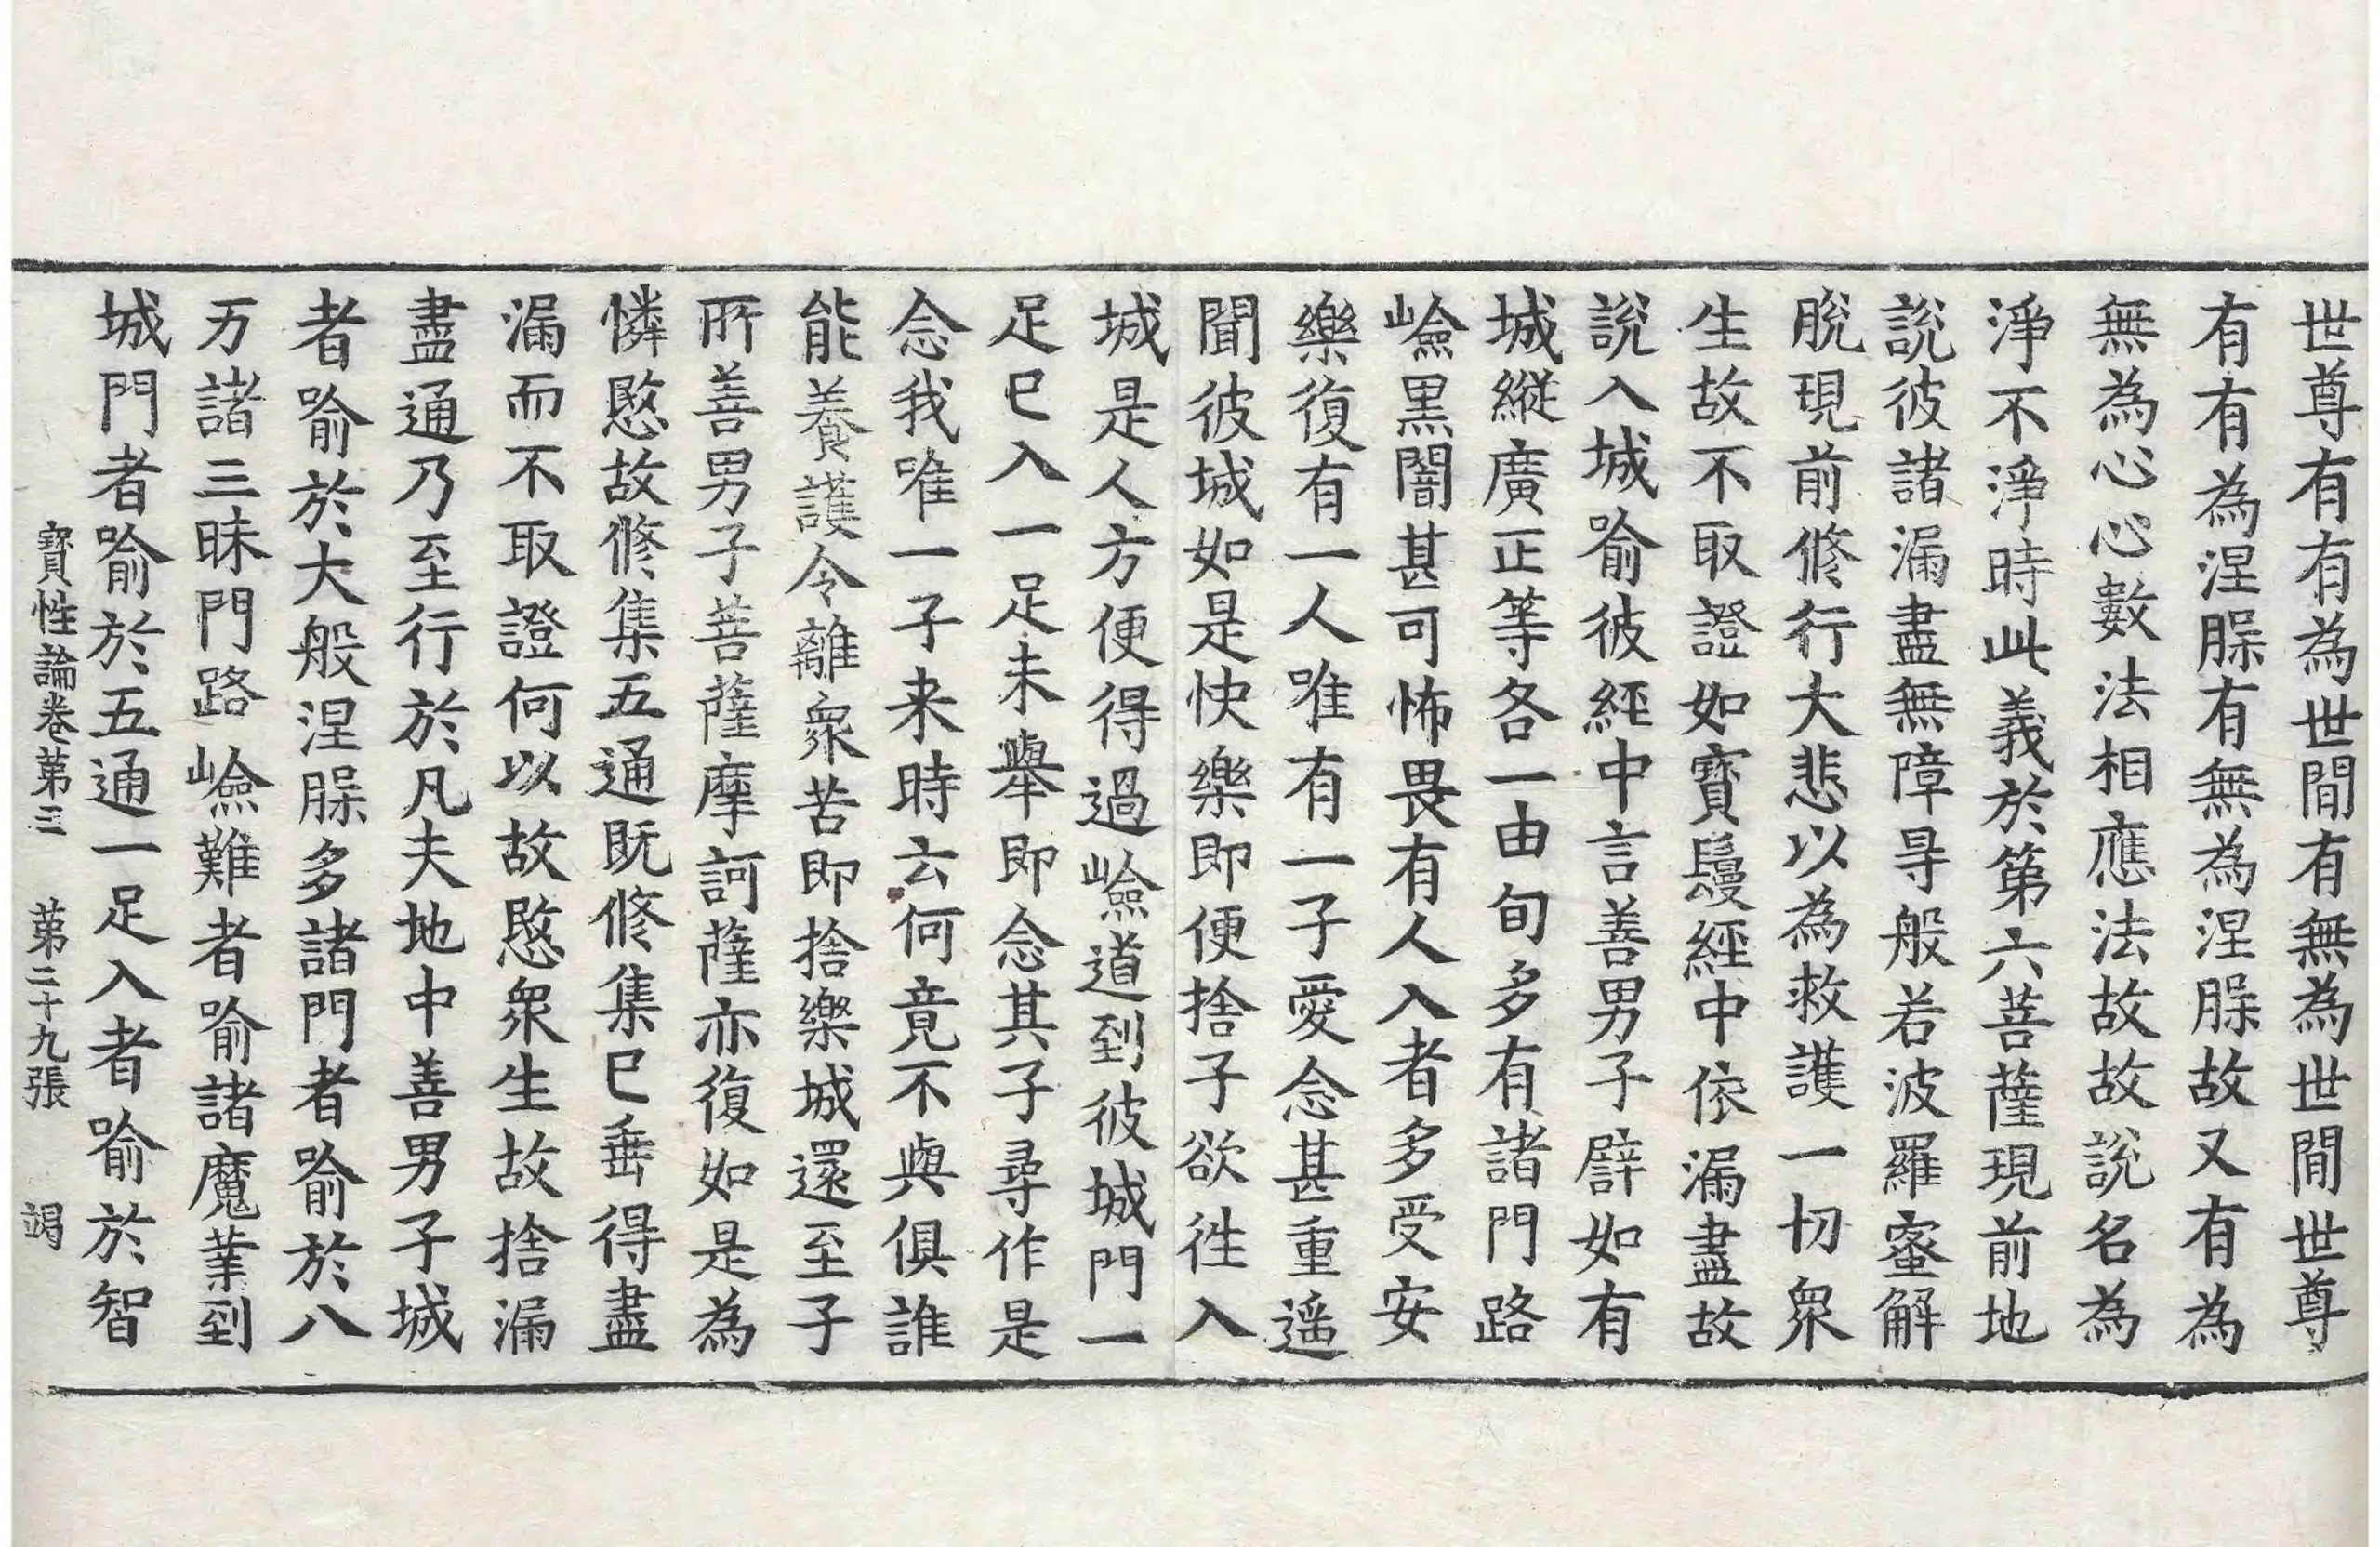 世尊有有為世間有無為世間世尊
有有為涅脲有無為涅脲故又有為
無為心心數法相應法故故說名為
淨不淨時此義於第六菩薩現前地
說彼諸漏盡無障㝵般若波羅蜜解
脫現前修行大悲以為救護一切衆
生故不取證如寳鬘經中依漏盡故
說入城喻彼經中言善男子譬如有
城縱廣正等各一由旬多有諸門路
嶮黒闇甚可怖畏有人入者多受安
樂復有一人唯有一子愛念甚重遥
聞彼城如是快樂即便捨子欲徃入
城是人方便得過嶮道到彼城門一
足已入一足未舉即念其子尋作是
念我唯一子来時云何竟不與俱誰
能養護令離衆苦即捨樂城還至子
所善男子菩薩摩訶薩亦復如是為
憐愍故修集五通既修集已垂得盡
漏而不取證何以故愍衆生故捨漏
盡通乃至行於凡夫地中善男子城
者喻於大般涅脲多諸門者喻於八
万諸三昧門路嶮難者喻諸魔業到
城門者喻於五通一足入者喻於智
寳性論卷第三　第二十九張　竭